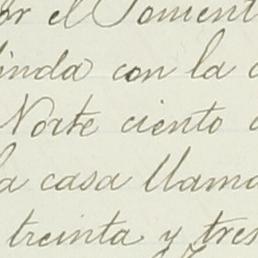 por el Foment
linda con la c
Norte ciento
la casa llama
treinta y tres